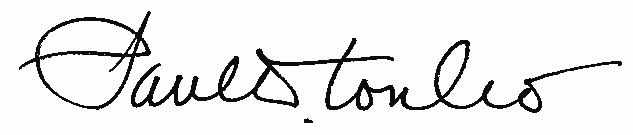 Paul D. Tonko